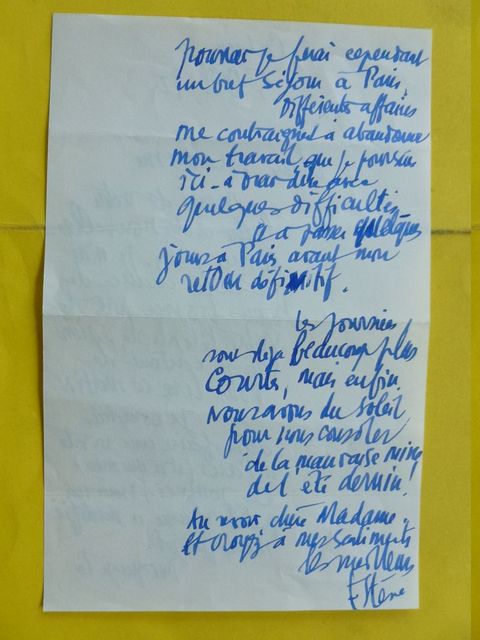 pourrai je ferai cependant
un bref séjour à Paris.
Différents affaires
me contraignent à abandonner
mon travail que je poursuis
ici - à vrai dire avec
quelques difficultés
et à passer quelques
jours à Paris avant mon
retour définitif.
Les journées
sont déjà beaucoup plus
courtes, mais enfin
nous avons du soleil
pour nous consoler
de la mauvaise mine
de l'été dernier!
Au revoir chère Madame,
et croyez à mes sentiments
les meilleurs